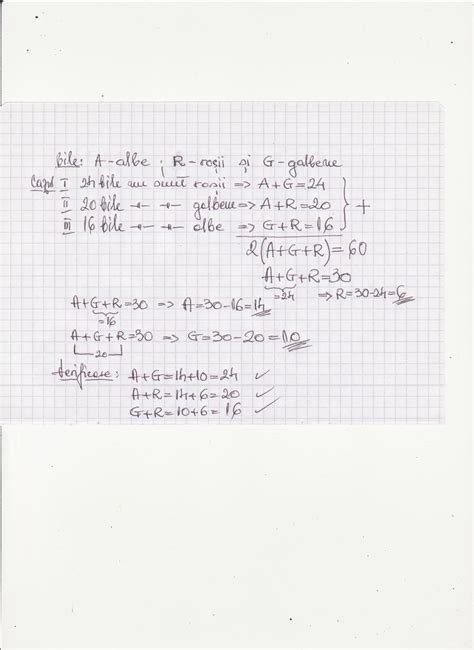 bile: A-albe ; R-roșii și G-galbene
Cazul I 24 bile nu sunt roșii => A+G=24
II 20 bile —"— —"— galbene => A+R=20
III 16 bile —"— —"— albe => G+R=16
+
2(A+G+R)=60
A+G+R=30
=24 => R=30-24=6
A+G+R=30 => A=30-16=14
=16
A+G+R=30 => G=30-20=10
20
Verificare: A+G=14+10=24 ✓
A+R=14+6=20 ✓
G+R=10+6=16 ✓